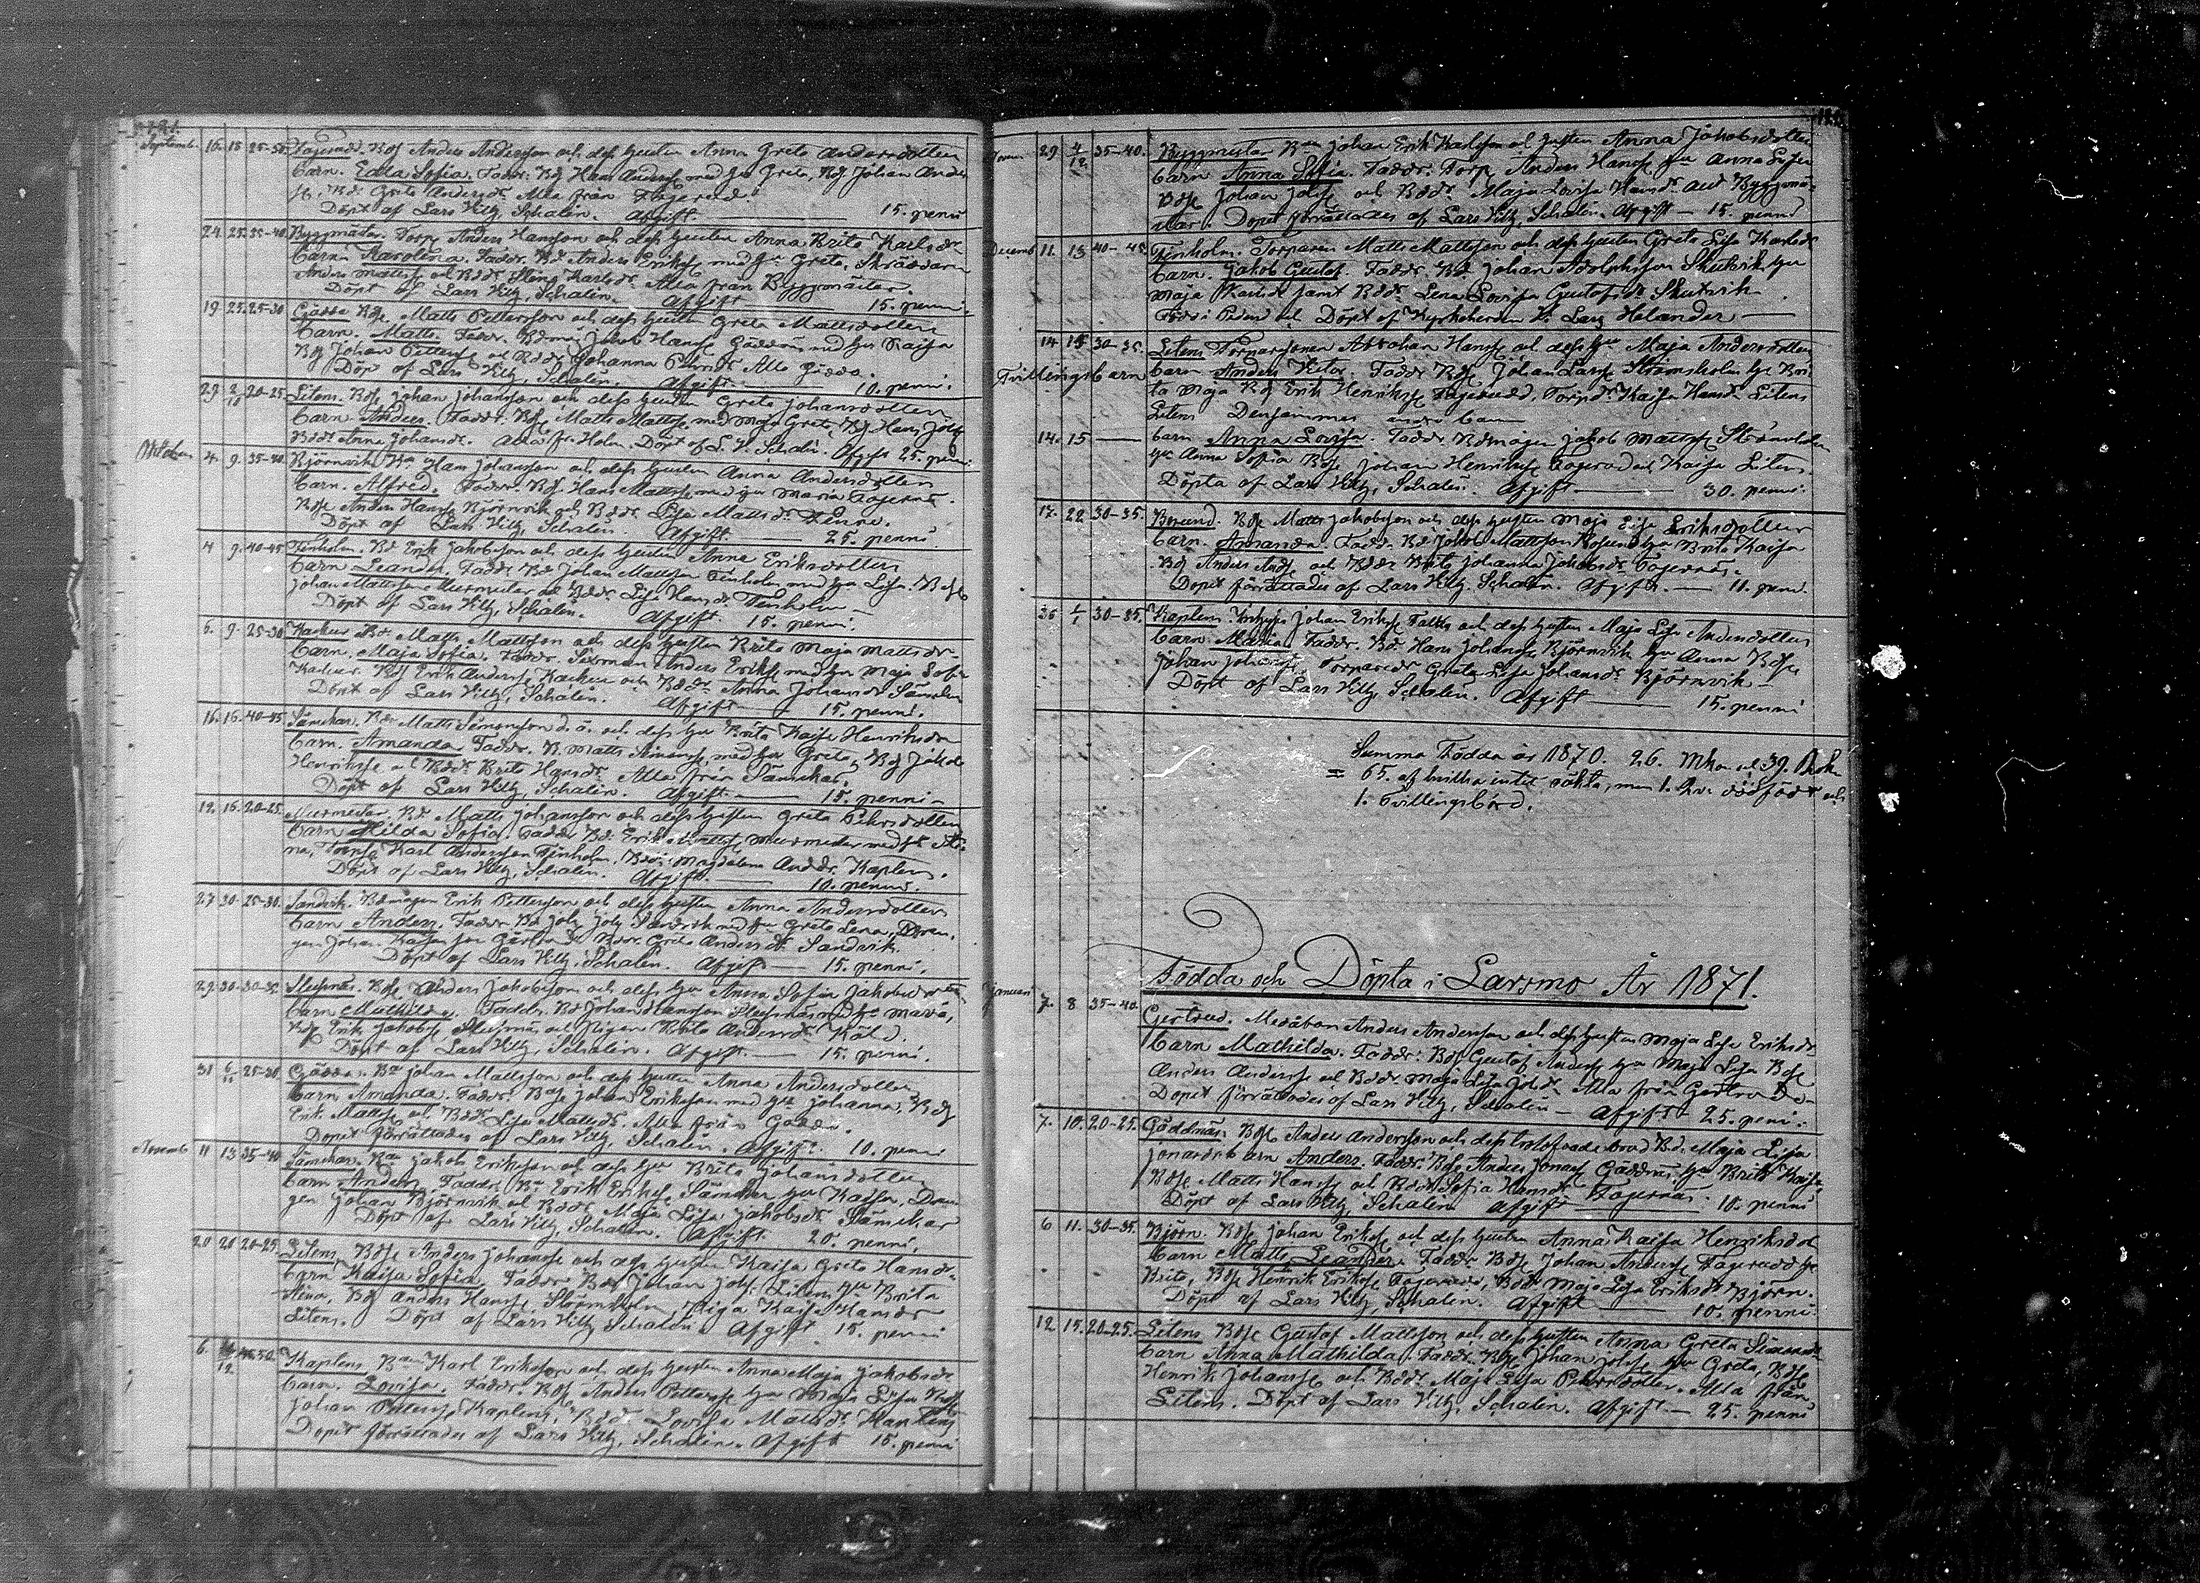 September 16. 18. 25-30. Fagerudd. Bdsn Anders Andersson och dess hustru Anna Greta Andersdotter
barn. Edla Sofia. Faddr. Bd. Hans Anderss. med hu Greta, Bdsn Johan Anders
Bdr. Greta Andersdr. Alla från Fagerudd.
Döpt af Lars Vilh. Schalin. Afgift — 15. penni
24. 25. 35-40. Byggmästar. Torp. Anders Hansson och dess hustru Anna Brita Karlsdr
barn Karolina. Faddr. Bd Anders Eriksss. med hu Greta, Skräddaren
Anders Mattss. och Bddr Karlsdr. Alla från Byggmästar.
Döpt af Lars Vilh. Schalin. Afgift — 15. penni.
19. 25. 25-30 Gädda Bds. Matts Pettersson och dess hustru Greta Mattsdotter
barn. Matts. Faddr. Jakob Hanss. Gäddnäs med hu Kaisa
Bds Johan Petterss. och Bddr Johanna Alla Gädda.
Döpt af Lars Vilh. Schalin. Afgift — 10. penni.
29. 2/10 20-25. Litens. Bds. Johan Johansson och dess hustru Greta Johansdotter
barn Anders. Faddr. Bds. Matts Mattss. med Maja Greta, Bds Hans Johss
Bddr Anna Johansdr. Alla fr. Holm. Döpt af L. V. Schalin. Afgift 25. penni
Oktober 4. 9. 35-40. Björnvik Bn Hans Johansson och dess hustru Anna Andersdotter
barn. Alfred. Faddr. Bds. Hans Mattss. med hu Maria Fagernäs.
Bds. Anders Hanss. Björnvik och Bddr. Lisa Mattsdr
Döpt af Lars Vilh. Schalin. Afgift — 25. penni.
4 9. 40-45 Finholm. Bd Erik Jakobsson och dess hustru Anna Eriksdotter
barn Leander. Faddr. Bd Johan Mattsson Finholm med hu Lisa. Bds
Johan Mattsson Murmester och Bddr. Lisa Hansdr Finholm —
Döpt af Lars Vilh. Schalin. Afgift. 15. penni.
6. 9. 25-30. Kackur Bd. Matts Mattsson och dess hustru Brita Maja Mattsdr
barn. Maja Sofia. Faddr. Sexman Anders Erikss. med hu Maja Sofia
Kackur. Bds Erik Anderss. Kackur och Bddr Anna Johansdr Sämskar
Döpt af Lars Vilh. Schalin. Afgift — 15. penni.
16. 16. 40-45 Sämskar. Bdr Matts Simonsson d. ä. och dess hu Brita Kaisa Henriksdr
barn. Amanda Faddr. B. Matts Simonss. med hu Greta, Bds Jakob
Henrikss. och Bddr. Brita Hansdr Alla från Sämskar.
Döpt af Lars Vilh. Schalin. Afgift — 15. penni —
12. 16. 20-25. Murmester. Bd Matts Johansson och dess hustru Greta Pehrsdotter
barn Hilda Sofia. Faddr. Bd. Erik Mattss. Murmester med hu
Torps. Karl Andersson Finholm. Bddr. Magdalena Anddr. Kaplens.
Döpt af Lars Vilh. Schalin. Afgift. — 10. penni.
27. 30. 25-30. Sandvik. Bdmågen Erik Pettersson och dess hustru Anna Andersdotter
barn Anders. Faddr. Bd Joh. Johs. Sandvik med hu Greta Lena, Drän
gen Johan Bddr. Greta Andersdr Sandvik.
Döpt af Lars Vilh. Schalin. Afgift — 15. penni.
29. 30. 30-35. Slussnäs. Bds. Anders Jakobsson och dess hu Anna Sofia Jakobsdotter
barn Mathilda. Faddr. Bd Johan Hansson Slussnäs med hu Maria,
Bds Erik Jakobss. Slussnäs och Pigan Brita Andersdr
Döpt af Lars Vilh. Schalin. Afgift. — 15. penni.
31 6/11 25-30. Gädda. Bn Johan Mattsson och dess hustru Anna Andersdotter
barn Amanda. Faddr. Bds Johan Eriksson med hu Johanna, Bds
Erik Mattss. och Bddr Lisa Mattsdr. Alla från Gädda.
Dopet förrättades af Lars Vilh. Schalin. Afgift. 10. penni
November 11 13 35-40 Sämskar. Bn Jakob Eriksson och dess hu Brita Johansdotter
barn Anders. Faddr. Bn Erik Erikss. Sämskar hu Kaisa, Drän
gen Johan Björnvik och Bddr. Maja Lisa Jakobsdr Sämskar
Döpt af Lars Vilh. Schalin. Afgift 20. penni.
20 20 20-25. Litens. Bds. Anders Johanss. och dess hustru Kaisa Greta Hansdr
barn Kaisa Sofia. Faddr. Bds Johan Johss. Litens hu Brita
Stina, Bds Anders Hanss. Strömsholm, Piga Kaisa Hansdr
Litens. Döpt af Lars Vilh. Schalin. Afgift 15. penni
6. 50. Kaplens. Bn Karl Eriksson och dess hustru Anna Maja Jakobsdr
barn. Lovisa. Faddr. Bds Anders Petterss. hu Maja Lisa Bds
Johan Petterss. Kaplens, Bddr. Lovisa Mattsdr Kaplens
Dopet förrättades af Lars Vilh. Schalin. Afgift 15. penni
29 4/12 35-40. Byggmästar Bn Johan Erik Karlsson och hustru Anna Jakobsdotter
barn Anna Sofia. Faddr. Torp. Anders Hanss. hu Anna Lisa
Bds. Johan Johss. och Bddr. Maja Lovisa Hansdr. Byggmä-
star. Dopet förrättades af Lars Vilh. Schalin. Afgift — 15. penni
Decemb 11. 13 40-45. Finholm. Torparen Matts Mattsson och dess hustru Greta Lisa Karlsdr
barn. Jakob Gustaf. Faddr. Bd. Johan Adolphsson Skutvik hu
Maja Kaisa samt Bddr. Lena Lovisa Gustafsdr Skutvik.
Född i och Döpt af Kyrkoherden Lars Helander —
14 15 30-35. Litens Torparsonen Abraham Hanss. och dess hu Maja Andersdotter
Tvillingsbarn barn Anders Victor. Faddr Bds. Johan Larss. Strömsholm hu Bri-
ta Maja Bds Erik Henrikss. Fagerudd, Torpdr Kaisa Hansdr Litens
Litens Densammes andra barn
14. 15 — barn Anna Lovisa. Faddr. Bdmågen Jakob Mattss. Strömsholm
hu Anna Sofia Bds. Johan Henrikss. Fagerudd och Kaisa Litens.
Döpta af Lars Vilh. Schalin. Afgift — 30. penni
17. 22 30-35. Bosund. Bds Matts Jakobsson och dess hustru Maja Lisa Eriksdotter
barn. Amanda. Faddr. Bd. Jakob Mattsson Bosund hu Brita Kaisa
Bds Anders Anders. och Bddr. Brita Johanna Jakobsdr Fagernäs.
Dopet förrättades af Lars Vilh. Schalin. Afgift. — 11. penni.
1/1 30-35. Kaplens. Johan Erikss. och dess hustru Maja Lisa Andersdotter
barn. Maria Faddr. Bd. Hans Johanss. Björnvik hu Anna Bds.
Johan Johanss. Torparedr Greta Lisa Johansdr Björnvik —
Döpt af Lars Vilh. Schalin. Afgift — 15. penni
Summa Födda år 1870. 26. Mkn och 39. Qvkn
= 65. af hvilka intet oäkta, men 1. Qv. dödfödt och
1. Tvillingsbörd.
Födda och Döpta i Larsmo År 1871.
Januari 7. 8 35-40. Gertrud. Anders Andersson och dess hustru Maja Lisa Eriksdr
barn Mathilda. Faddr. Bds Gustaf Anderss. hu Maja Lisa Bds.
Anders Anderss. och Bddr. Maja Lisa Johdr. Alla från Gertrud —
Dopet förrättades af Lars Vilh. Schalin — Afgift — 25. peni.
7. 10. 20-25. Gäddnäs. Bds. Anders Andersson och dess trolofvade brud Bd. Maja Lisa
Jonasdr barn Anders. Faddr. Bds. Anders Jonass. Gäddnäs hu Brita Kaisa
Bds. Matts Hanss. och Bddr Sofia Hansdr Fagernäs.
Döpt af Lars Vilh. Schalin Afgift — 10. penni
6 11. 30-35. Björn. Bds. Johan Erikss. och dess hustru Anna Kaisa Henriksdot
barn Matts Leander. Faddr. Bds Johan Anderss. Fagerudd hu
Brita, Bds. Henrik Erikss. Fagerudd, Bddr Maja Lisa Eriksdr Björn.
Döpt af Lars Vilh. Schalin. Afgift — 10. penni
12 15. 20-25. Litens Bds. Gustaf Mattsson och dess hustru Anna Greta Simonsdr
barn Anna Mathilda. Faddr. Bds Johan Johss. hu Greta, Bds.
Henrik Johanss. och Bddr. Maja Lisa Pehrsdotter. Alla från
Litens. Döpt af Lars Vilh. Schalin. Afgift — 25. penni